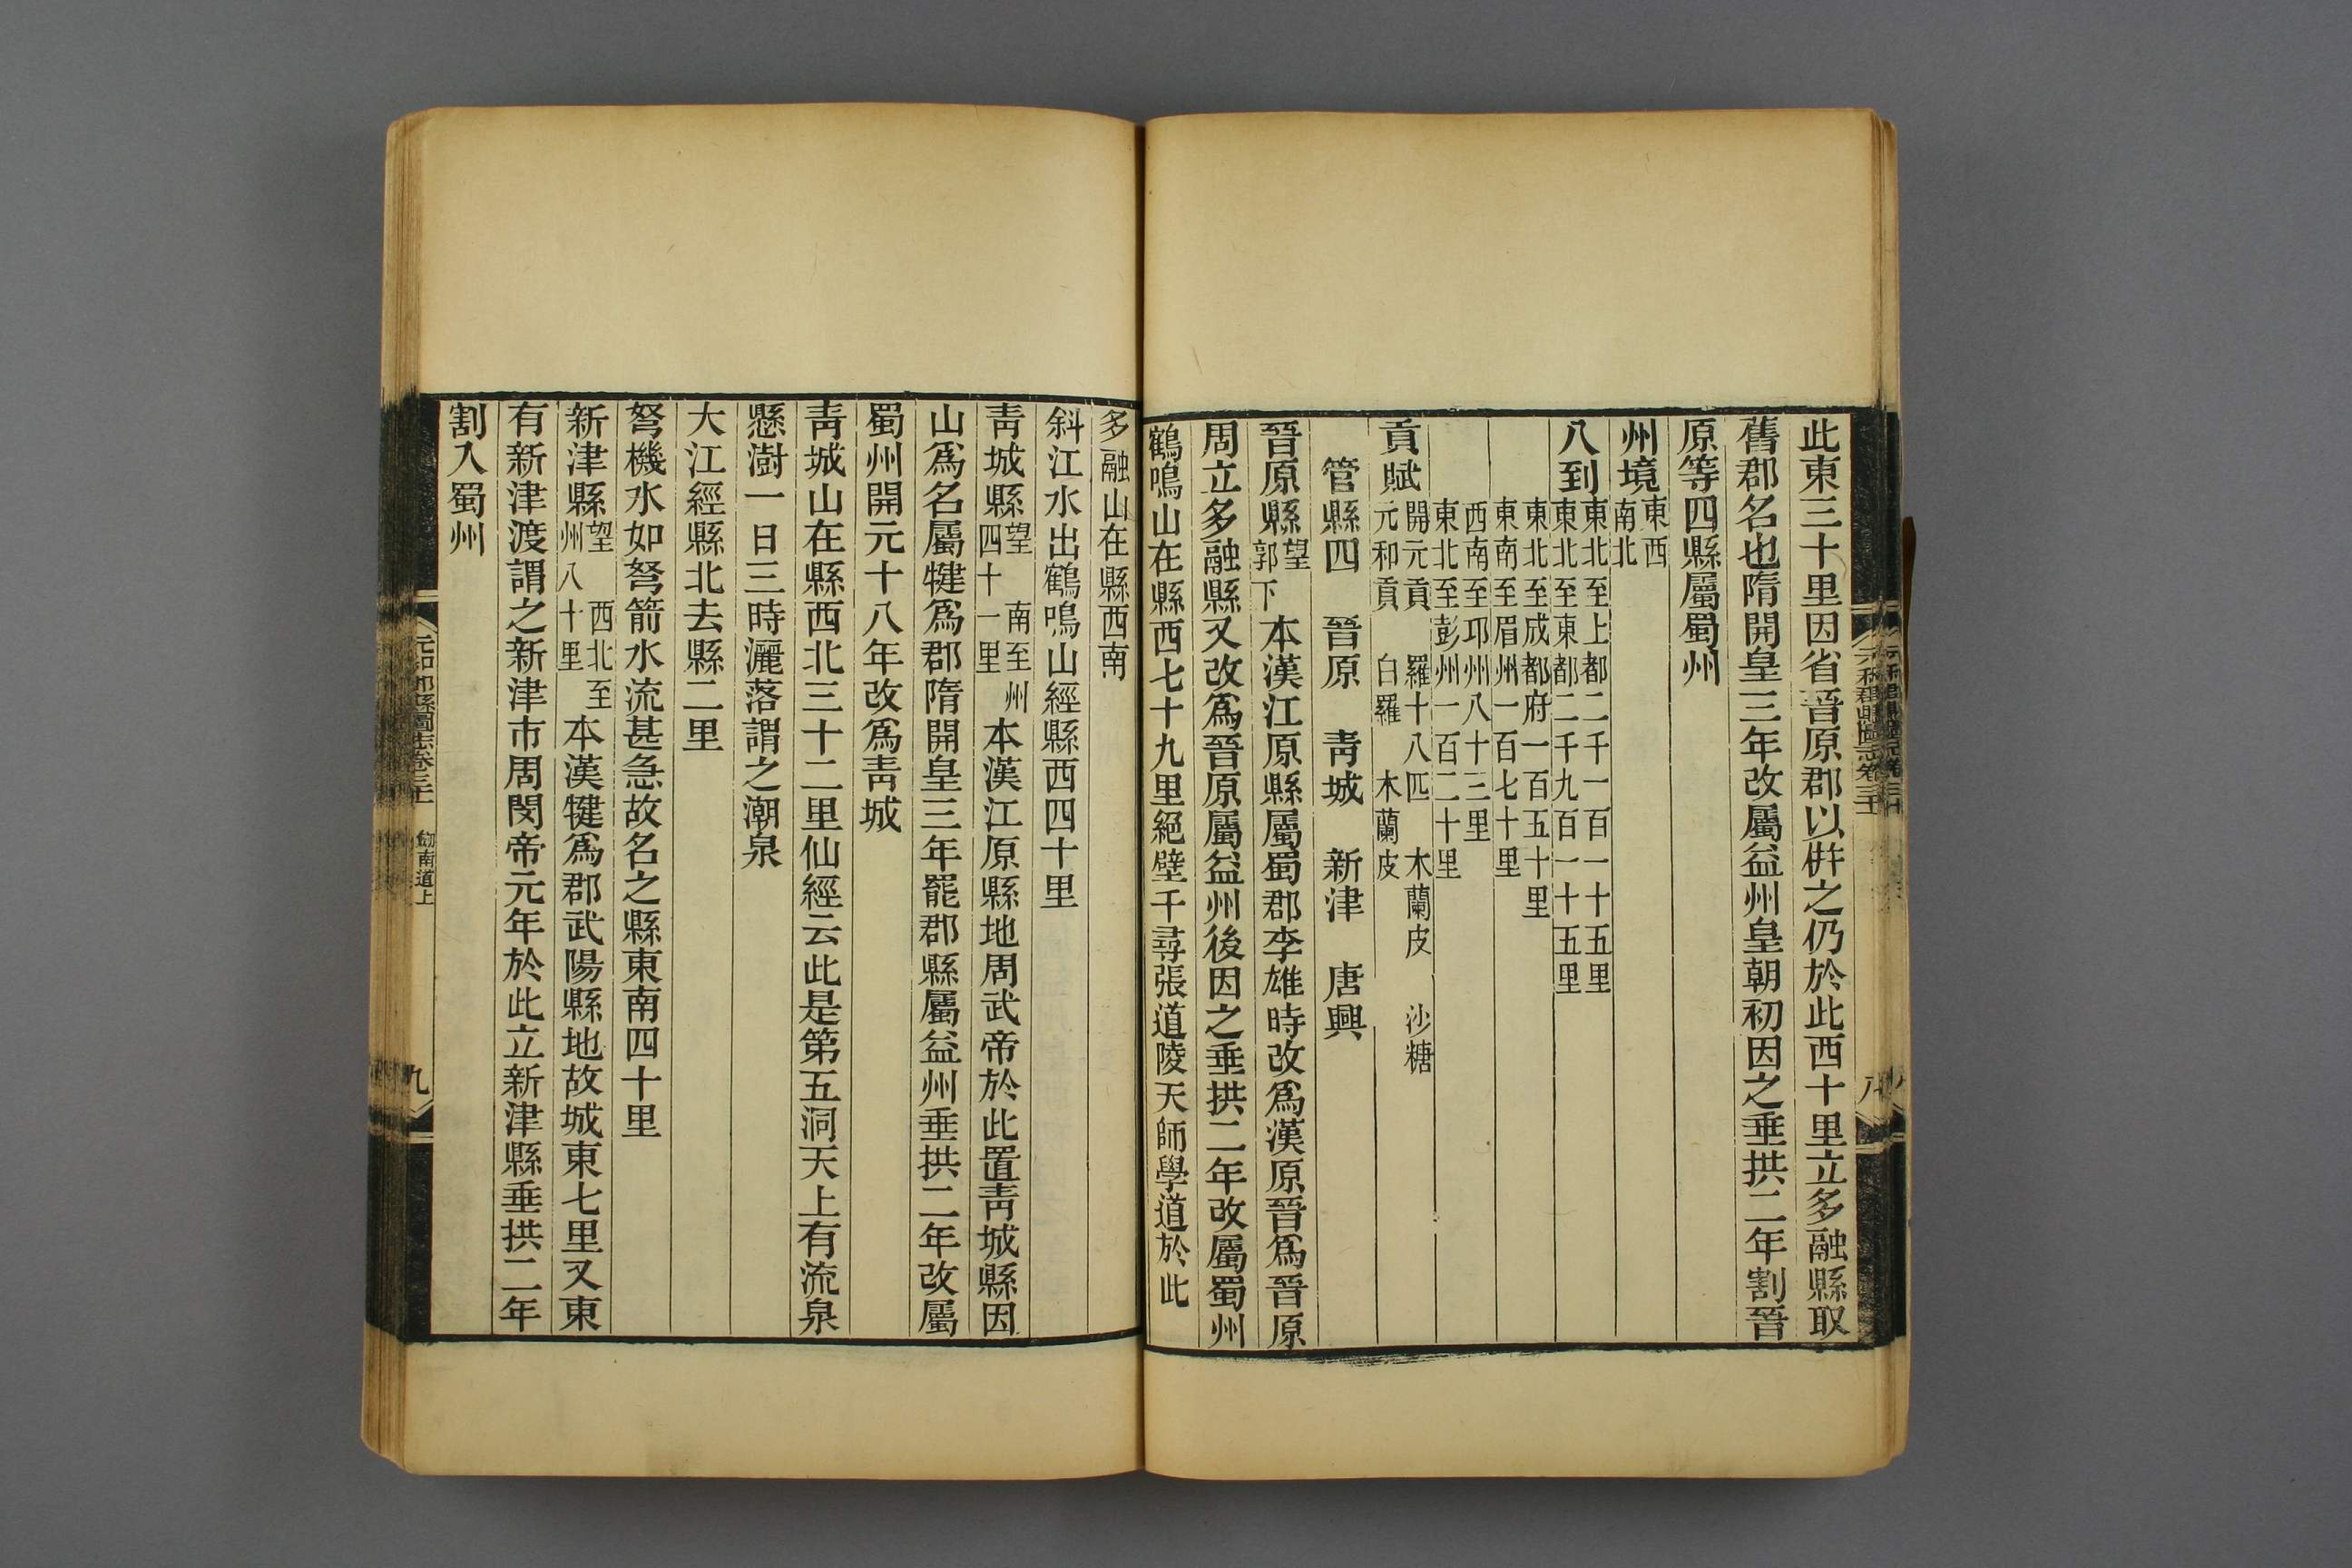 此東三十里因省晉原郡以倂之仍於此西十里立多融縣取
舊郡名也隋開皇三年改屬益州皇朝初因之垂拱二年割晉
原等四縣屬蜀州
州境東西
南北
八到東北至上都二千一百一十五里
東北至東都二千九百一十五里
東北至成都府一百五十里
東南至眉州一百七十里
西南至邛州八十三里
東北至彭州一百二十里
貢賦開元貢 羅十八匹 木蘭皮 沙糖
元和貢 白羅 木蘭皮
管縣四 晉原 靑城 新津 唐興
晉原縣望
郭下
本漢江原縣屬蜀郡李雄時改爲漢原晉爲晉原
周立多融縣又改爲晉原屬益州後因之垂拱二年改屬蜀州
鶴鳴山在縣西七十九里絕壁千尋張道陵天師學道於此
多融山在縣西南
斜江水出鶴鳴山經縣西四十里
靑城縣望 南至州
四十一里
本漢江原縣地周武帝於此置靑城縣因
山爲名屬犍爲郡隋開皇三年罷郡縣屬益州垂拱二年改屬
蜀州開元十八年改爲靑城
靑城山在縣西北三十二里仙經云此是第五洞天上有流泉
懸澍一日三時灑落謂之潮泉
大江經縣北去縣二里
弩機水如弩箭水流甚急故名之縣東南四十里
新津縣望 西北至
州八十里
本漢犍爲郡武陽縣地故城東七里又東
有新津渡謂之新津市周閔帝元年於此立新津縣垂拱二年
割入蜀州
元和郡縣圖志卷三十一 劒南道上
九